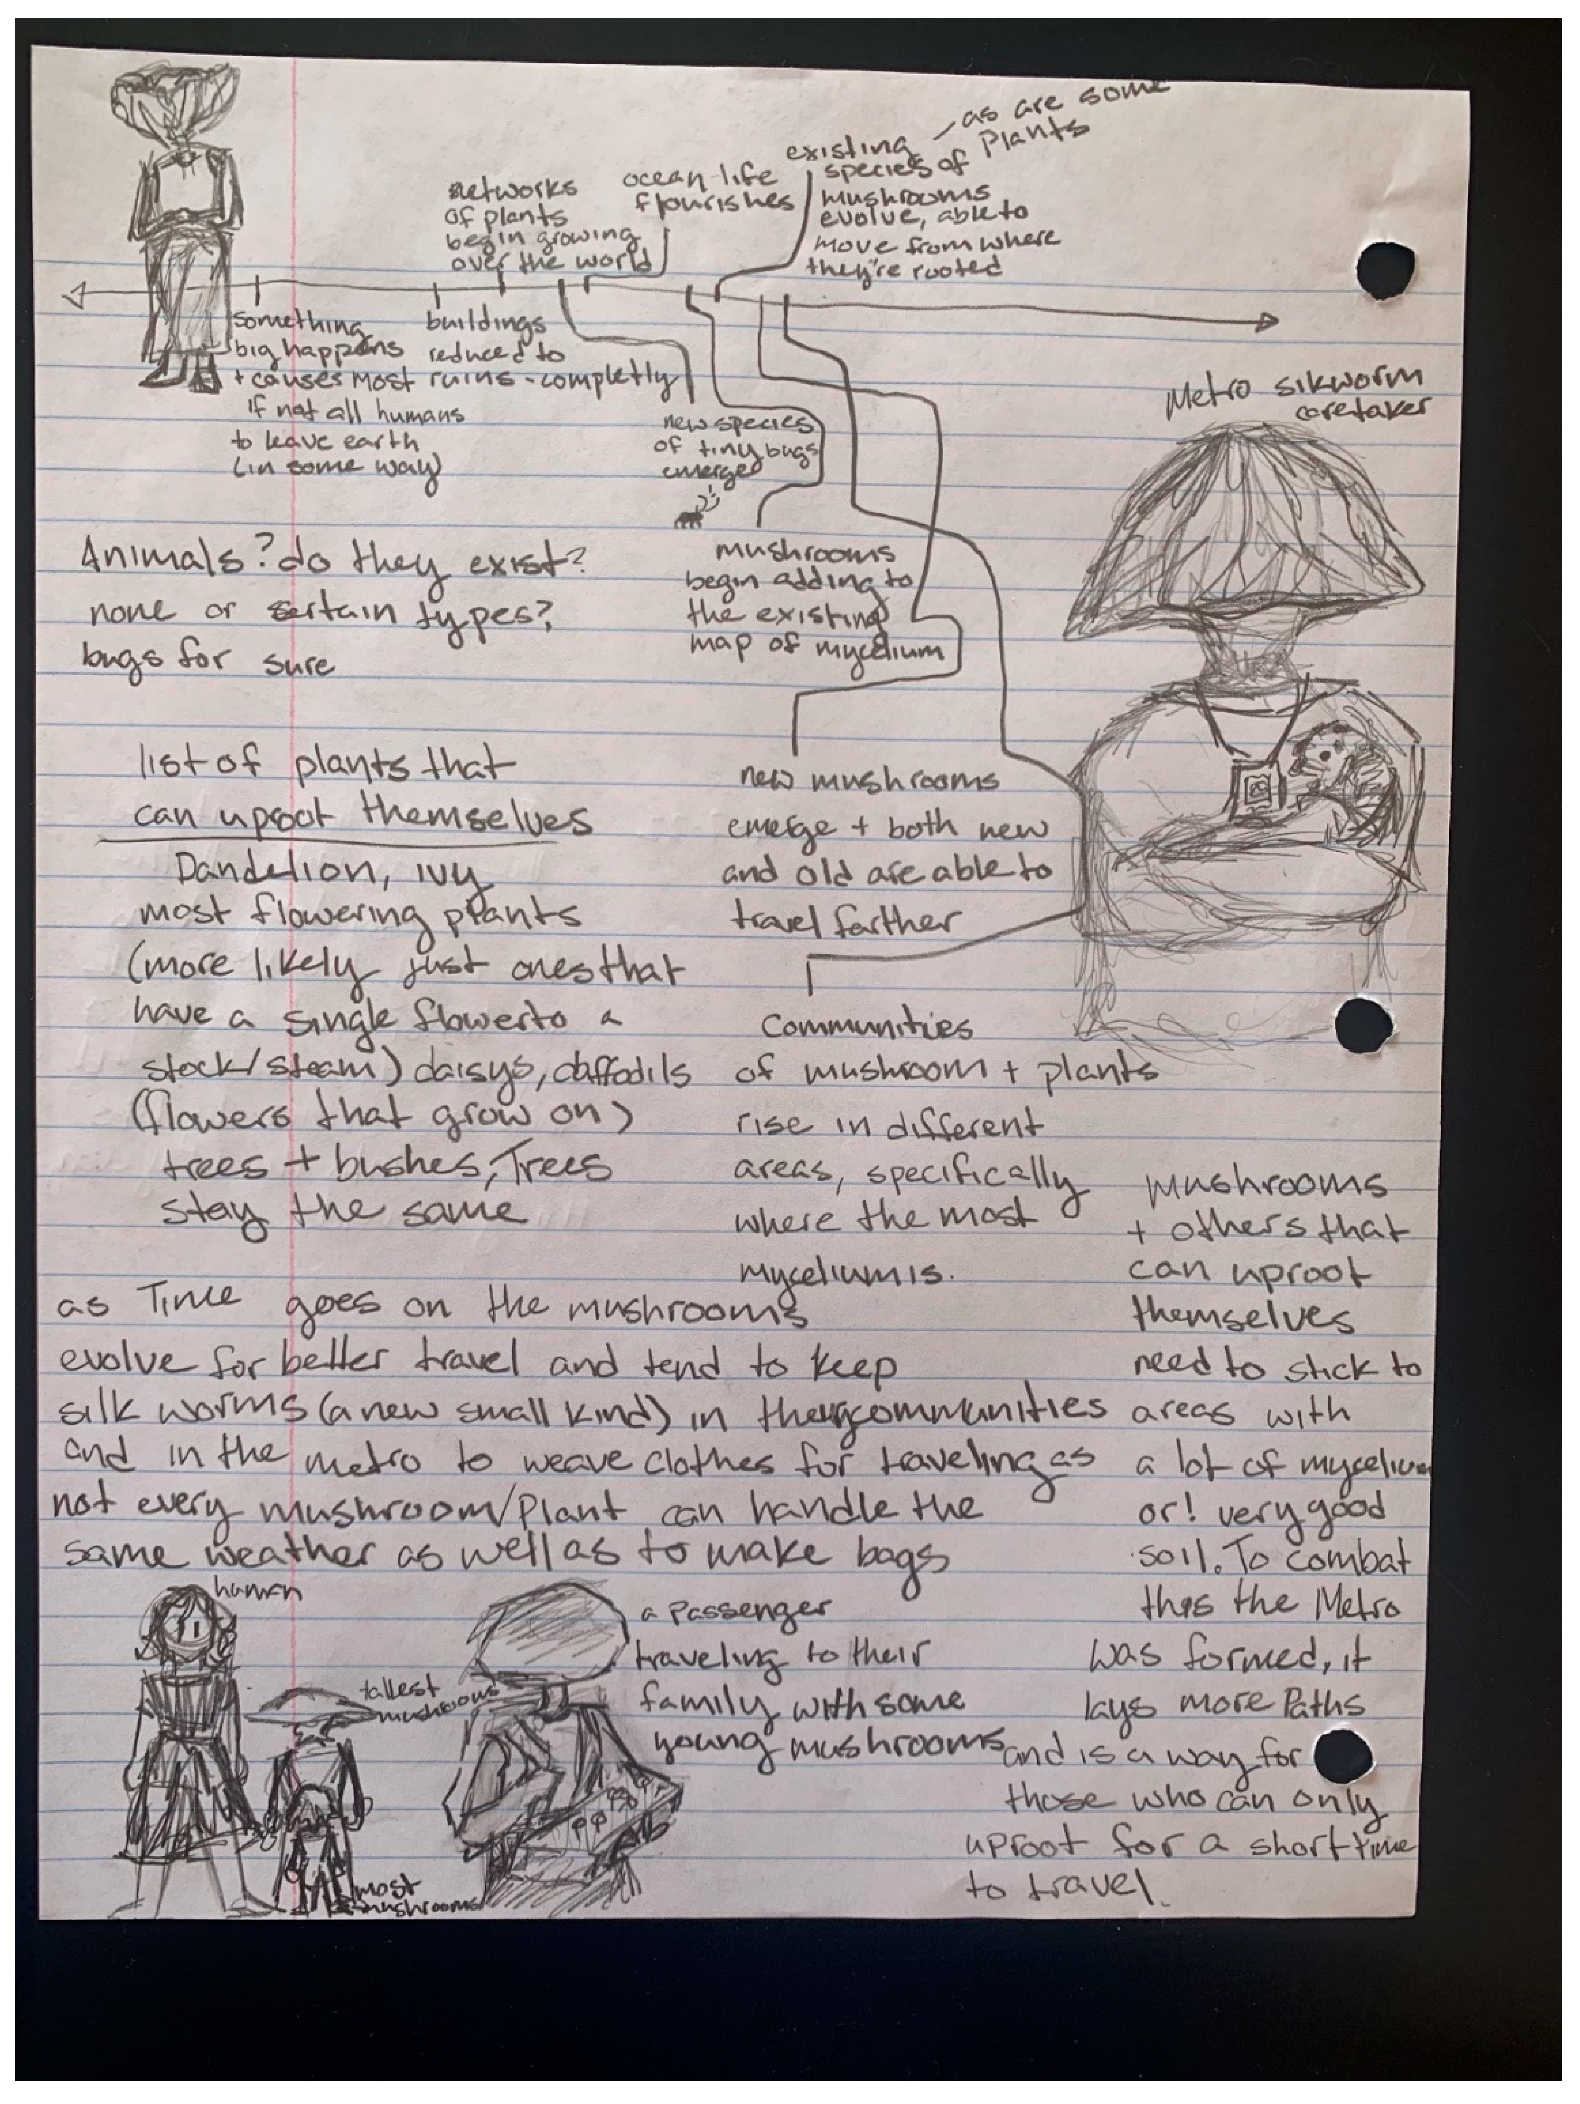 as are some
Plants
existing
species of
mushrooms
evolve, able to
move from where
they're rooted
ocean-life
flourishes
networks
of plants
begin growing
over the world
something
big happens
+ causes most
if not all humans
to leave earth
(in some way)
buildings
reduced to
ruins - completly
new species
of tiny bugs
emerge
Metro silkworm
caretaker
Animals? do they exist?
none or certain types?
bugs for sure
mushrooms
begin adding to
the existing
map of mycelium
list of plants that
can uproot themselves
Dandelion, ivy
most flowering plants
(more likely just ones that
have a single flower to a
stock/steam) daisys, daffodils
(flowers that grow on)
trees + bushes, Trees
stay the same
new mushrooms
emerge + both new
and old are able to
travel farther
Communities
of mushroom + plants
rise in different
areas, specifically
where the most
mycelium is.
as Time goes on the mushrooms
evolve for better travel and tend to keep
silk worms (a new small kind) in their communities
and in the metro to weave clothes for traveling as
not every mushroom/plant can handle the
same weather as well as to make bags
mushrooms
+ others that
can uproot
themselves
need to stick to
areas with
a lot of mycelium
or! very good
soil. To combat
this the Metro
was formed, it
lays more Paths
and is a way for
those who can only
uproot for a short time
to travel.
human
tallest
mushrooms
most
mushrooms
a Passenger
traveling to their
family with some
young mushrooms